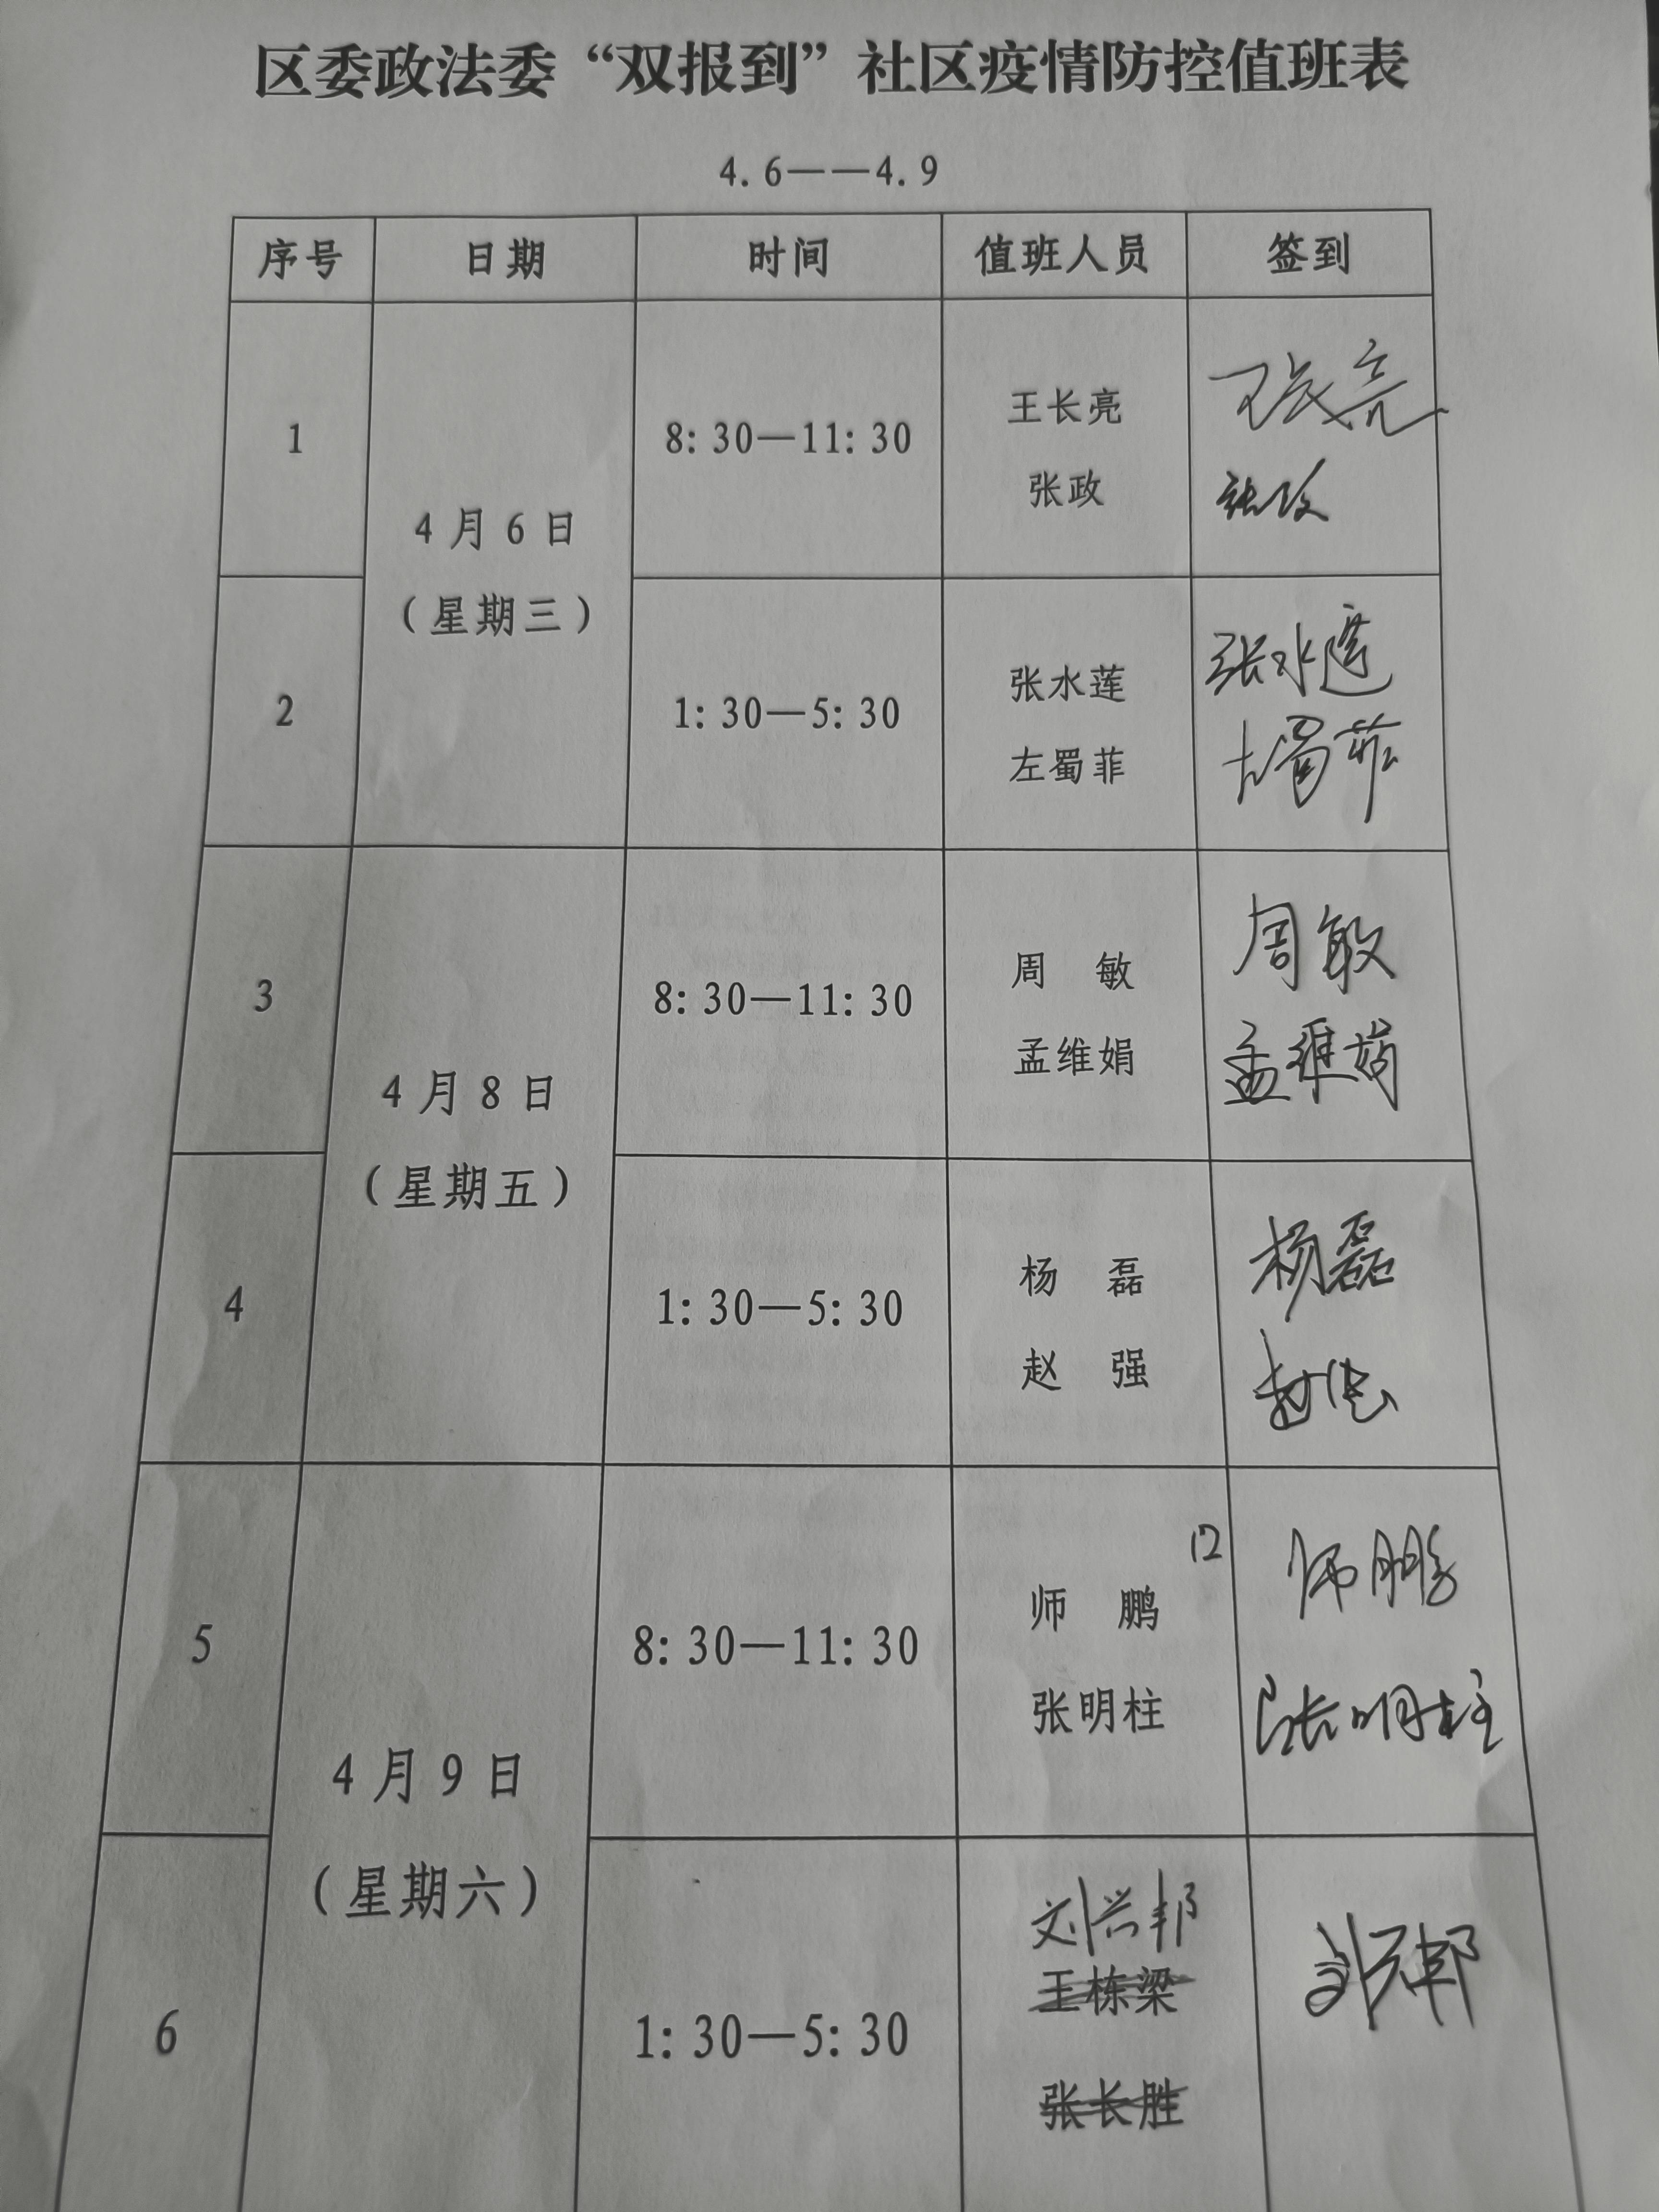 区委政法委“双报到”社区疫情防控值班表
4.6——4.9
序号 日期 时间 值班人员 签到
1 4月6日（星期三） 8:30—11:30 王长亮 王长亮
张政 张政
2 1:30—5:30 张水莲 张水莲
左蜀菲 左蜀菲
3 4月8日（星期五） 8:30—11:30 周敏 周敏
孟维娟 孟维娟
4 1:30—5:30 杨磊 杨磊
赵强 赵强
5 4月9日（星期六） 8:30—11:30 12
师鹏 师鹏
张明柱 张明柱
6 1:30—5:30 刘兴邦 刘兴邦
王栋梁
张长胜